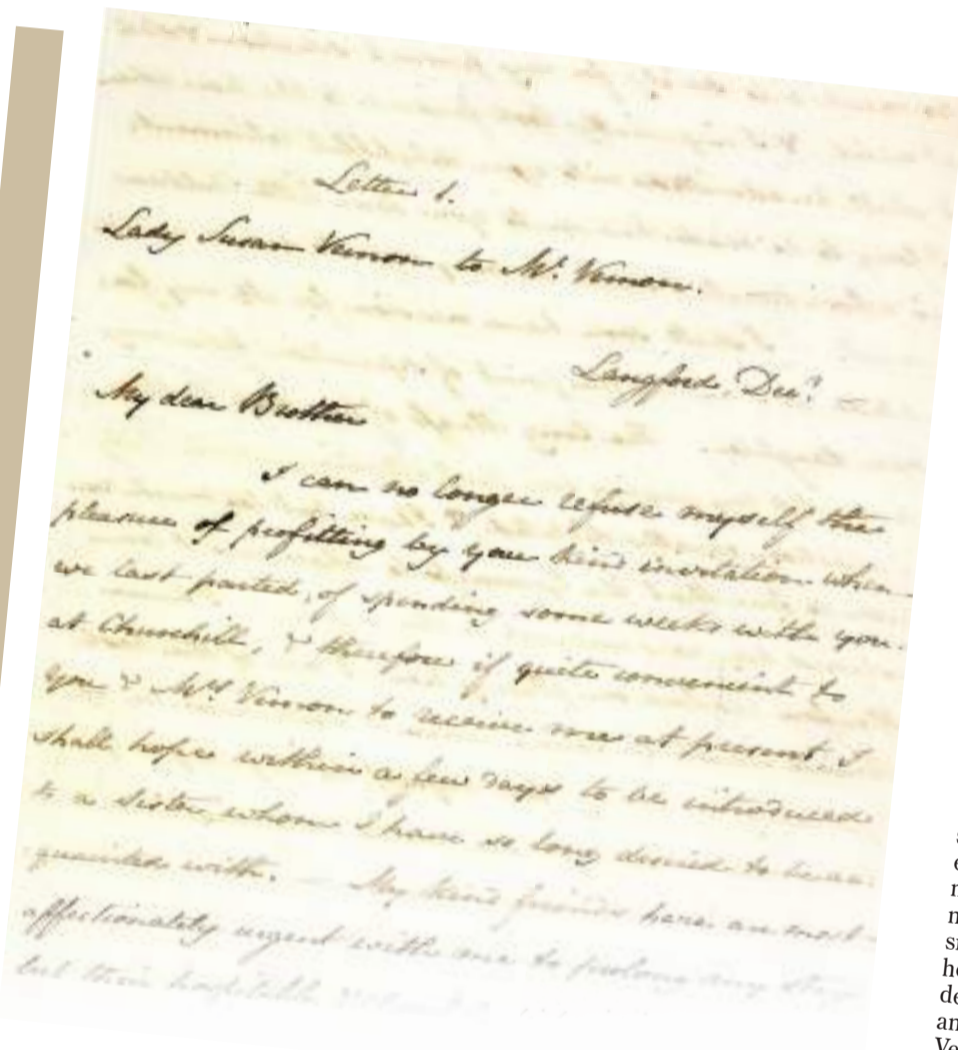 Letter 1.
Lady Susan Vernon to Mr. Vernon.
Langford, Decr.
My dear Brother
I can no longer refuse myself the
pleasure of profitting by your kind invitation when
we last parted, of spending some weeks with you
at Churchill, & therefore if quite convenient to
you & Mrs Vernon to receive me at present, I
shall hope within a few days to be introduced
to a Sister whom I have so long desired to be ac-
quainted with. — My kind friends here are most
affectionately urgent with me to prolong my stay
but their hospitable
Ve